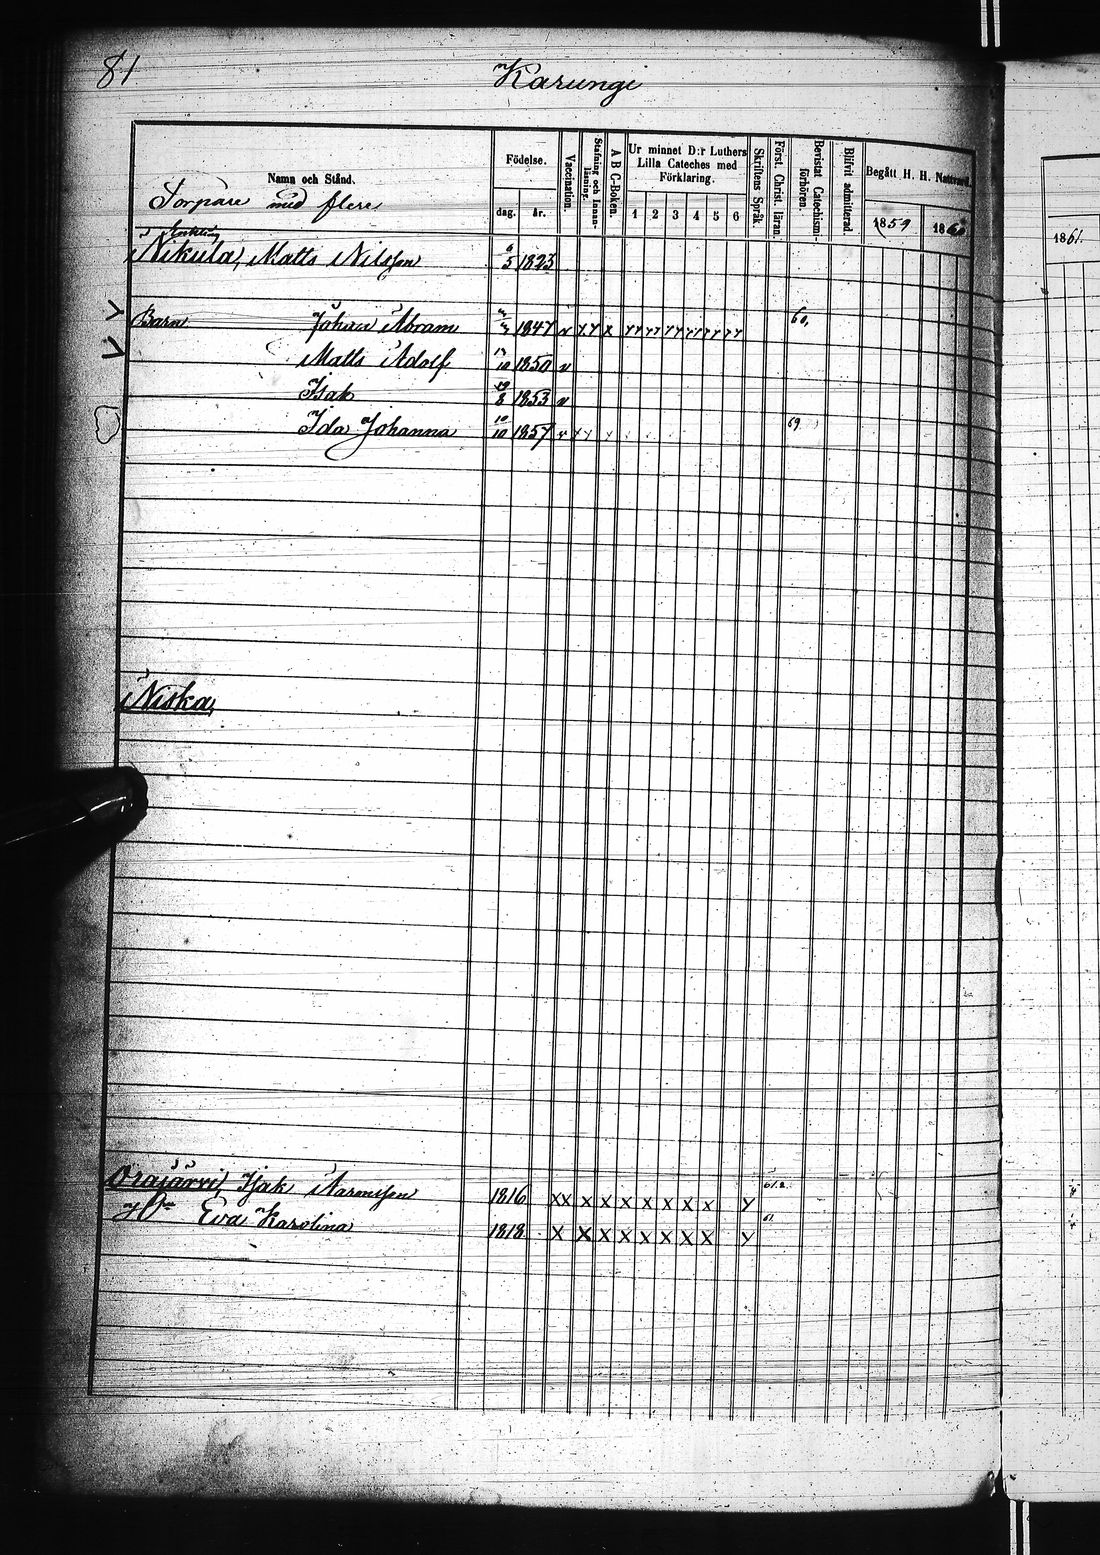 81
Karungi
Namn och Stånd. Födelse. Vaccination. Stafning och Innanläsning. A B C-Boken. Ur minnet D:r Luthers Lilla Cateches med Förklaring. Skriftens Språk. Först. Christ. läran. Bevistat Catechismi-förhören. Blifvit admitterad Begått H. H. Nattvard.
Torpare med flere
dag. år. 1 2 3 4 5 6 1859 1860 1861.
Enkling
Nikula, Matts Nilsson 6/5 1823
Barn Johan Abram 1847 60.
Matts Adolf 17/10 1850 v
Isak 19/8 1853 v
Ida Johanna 10/10 1857 69
Niska,
Orajärvi, Isak Aaronsson 1816 x x x x x x x x x y 61.2.
H:u Eva Karolina 1818 x x x x x x x x y 61